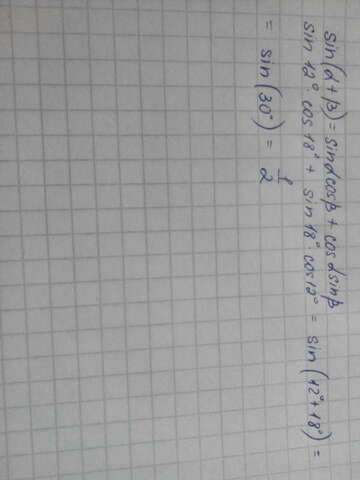 sin(α+β)=sinαcosβ+cosαsinβ
sin12°·cos18°+sin18°·cos12°=sin(12°+18°)=
=sin(30°)=1/2